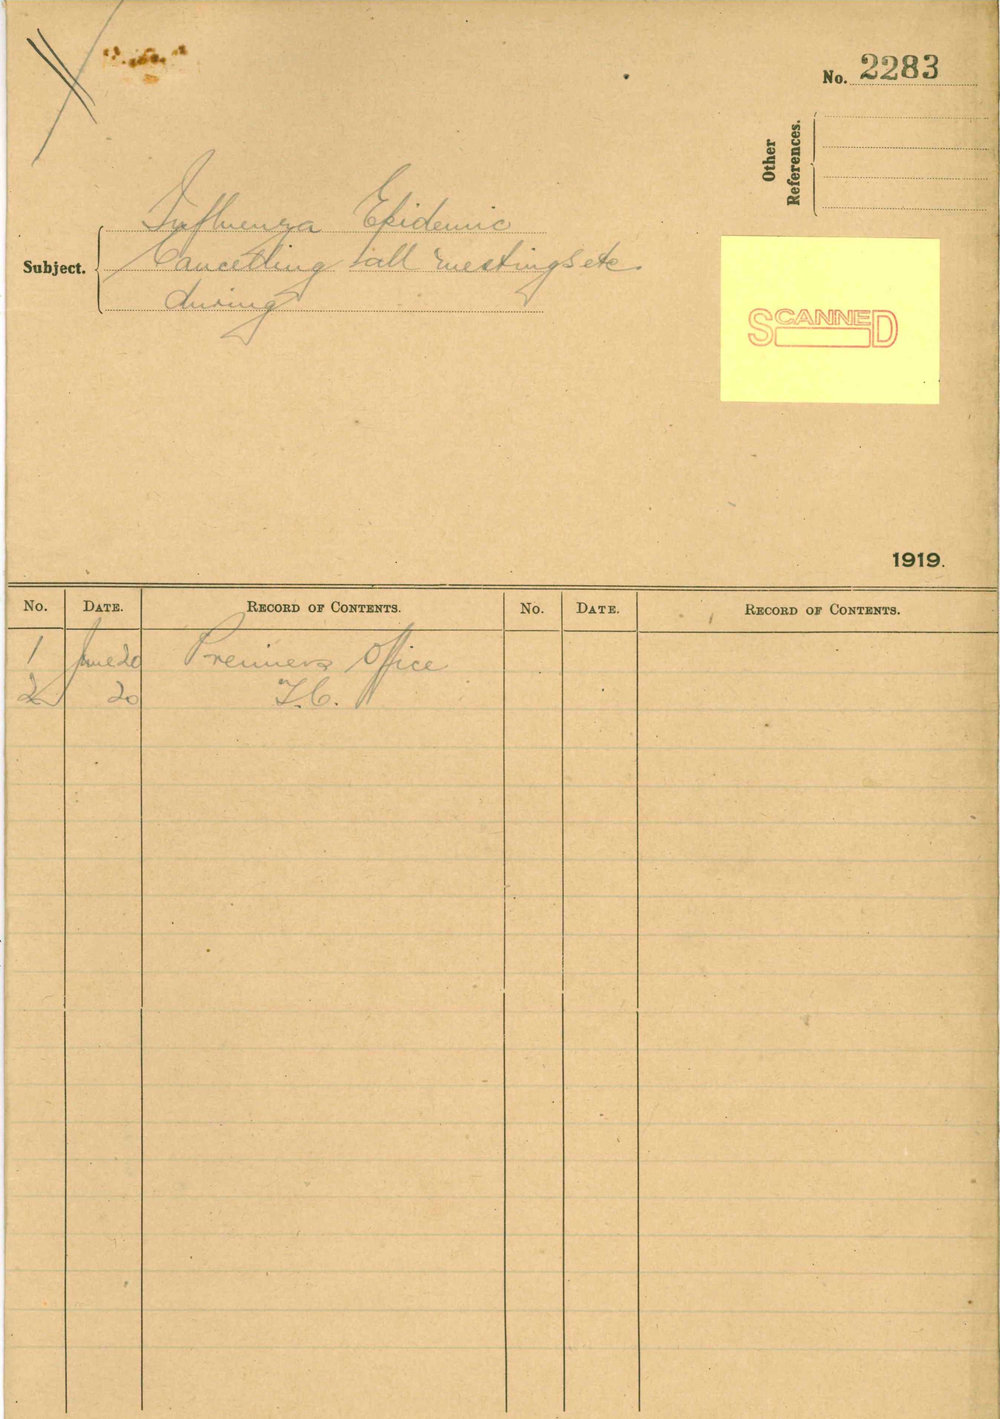 No. 2283
Other
References.
Influenza Epidemic
Subject. Cancelling all meetings etc.
during
SCANNED
1919.
No. DATE. RECORD OF CONTENTS. No. DATE. RECORD OF CONTENTS.
1 June 20 Premiers Office
2 20 T.C.